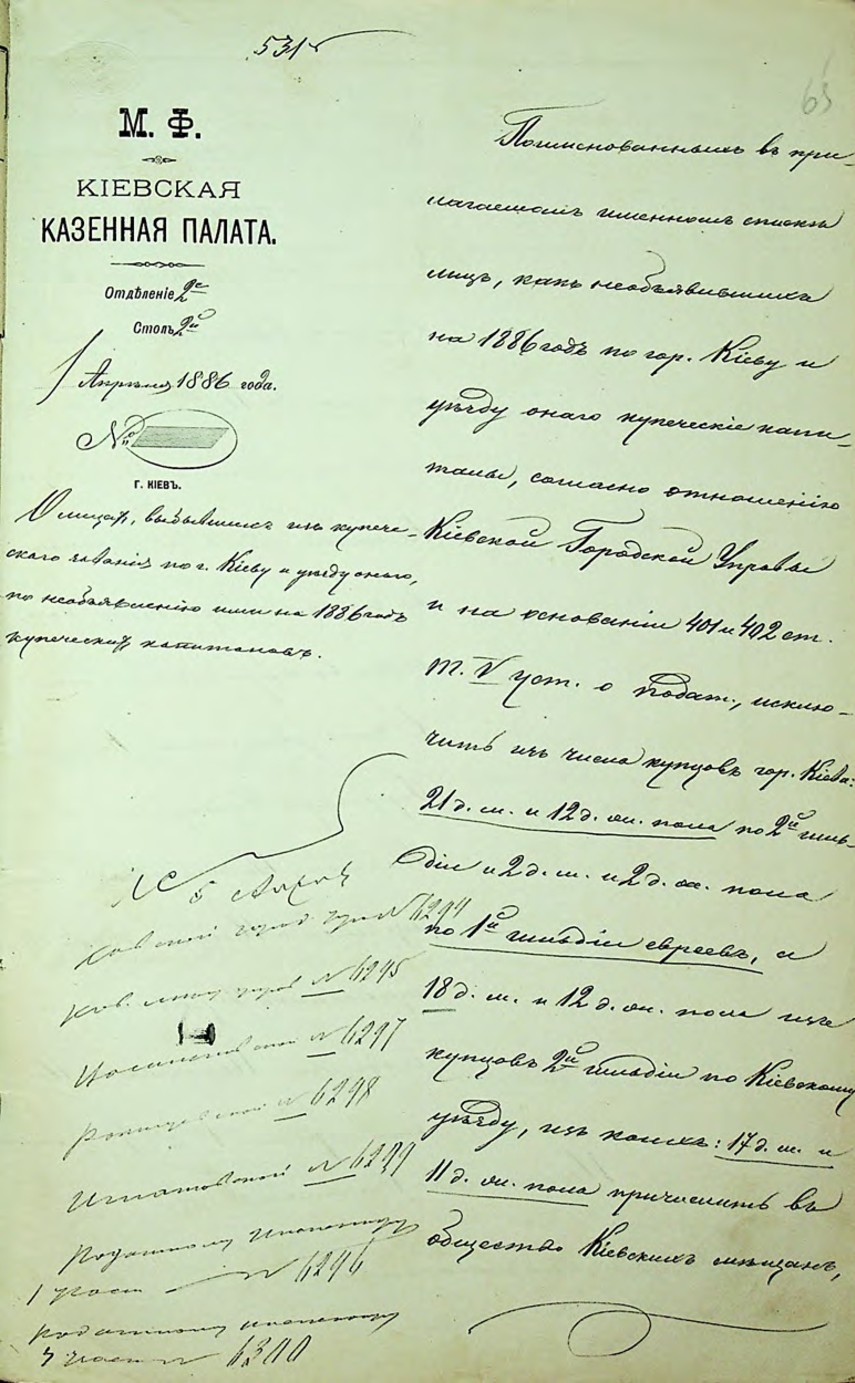 531
63
М. Ф.
КІЕВСКАЯ
КАЗЕННАЯ ПАЛАТА.
Отдѣленіе 2е
Столъ 2й
Апрѣля 1886 года.
№
Г. КІЕВЪ.
О лицах, выбывших изъ купече-
скаго званія по г. Кіеву и уѣзду онаго,
по необъявленію ими на 1886 годъ
купеческих капиталовъ.
Поименованныхъ въ при-
лагаемомъ именномъ спискѣ
лицъ, какъ необъявившихъ
на 1886 годъ по гор. Кіеву и
уѣзду онаго купеческіе капи-
талы, согласно отношенію
Кіевской Городской Управы
и на основаніи 401 и 402 ст.
т. V уст. о подат., исклю-
чить изъ числа купцовъ гор. Кіева:
21 д. м. и 12 д. ж. пола по 2й гиль-
діи и 2 д. м. и 2 д. ж. пола
по 1й гильдіи евреевъ, а
18 д. м. и 12 д. ж. пола изъ
купцовъ 2й гильдіи по Кіевскому
уѣзду, изъ коихъ: 17 д. м. и
11 д. ж. пола причислить въ
общество Кіевскихъ мѣщанъ,
город № 6294
№ 6295
№ 6297
№ 6298
Игнатовской № 6299
Податному инспектору
1 участ № 6296
податному инспектору
участ № 6300